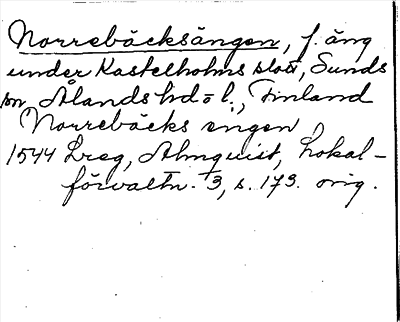 Norrebäcksängen, f. äng
under Kastelholms slott, Sunds
sn, Ålands hd o l., Finland
Norrebäcks engen
1544 Lreg, Almquist, Lokal-
förvaltn. 3, s. 173. orig.